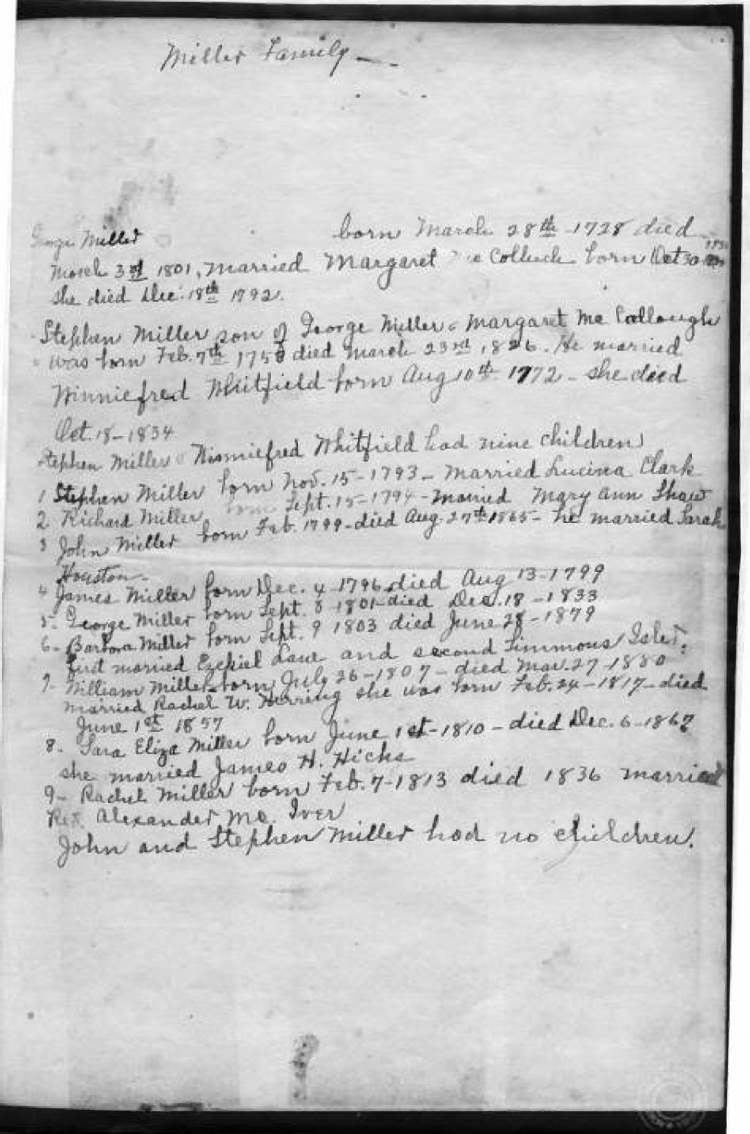 Miller Family
George Miller born March 28th 1728 died
March 3rd 1801, married Margaret Mc Colluch born Oct 30
She died Dec. 18th 1792.
Stephen Miller son of George Miller & Margaret Mc Collough
was born Feb. 7th 175 died March 23rd 1826. He married
Winniefred Whitfield born Aug 10th 1772 - she died
Oct. 18 - 1834
Stephen Miller & Winniefred Whitfield had nine children
1 Stephen Miller born Nov. 15 - 1793 - married Lucina Clark
2 Richard Miller born Sept. 15 - 1794 - married Mary Ann Shaw
3 John Miller born Feb. 1799 - died Aug. 27th 1865 - he married Sarah
Houston -
4 James Miller born Dec. 4 - 1796 died Aug 13 - 1799
5 - George Miller born Sept. 8 - 1801 - died Dec. 18 - 1833
6 - Barbara Miller born Sept. 9 1803 died June 28 - 1879
first married Ezekiel Lane and second Simmons Isler.
7 - William Miller born July 26 - 1807 - died Mar. 27 - 1880
married Rachel W. Herring she was born Feb. 24 - 1817 - died
June 1st 1857
8 - Sara Eliza Miller born June 1st - 1810 - died Dec. 6 - 1867
she married James H. Hicks
9 - Rachel Miller born Feb. 7 - 1813 died 1836 married
Rev. Alexander Mc. Iver
John and Stephen Miller had no children.